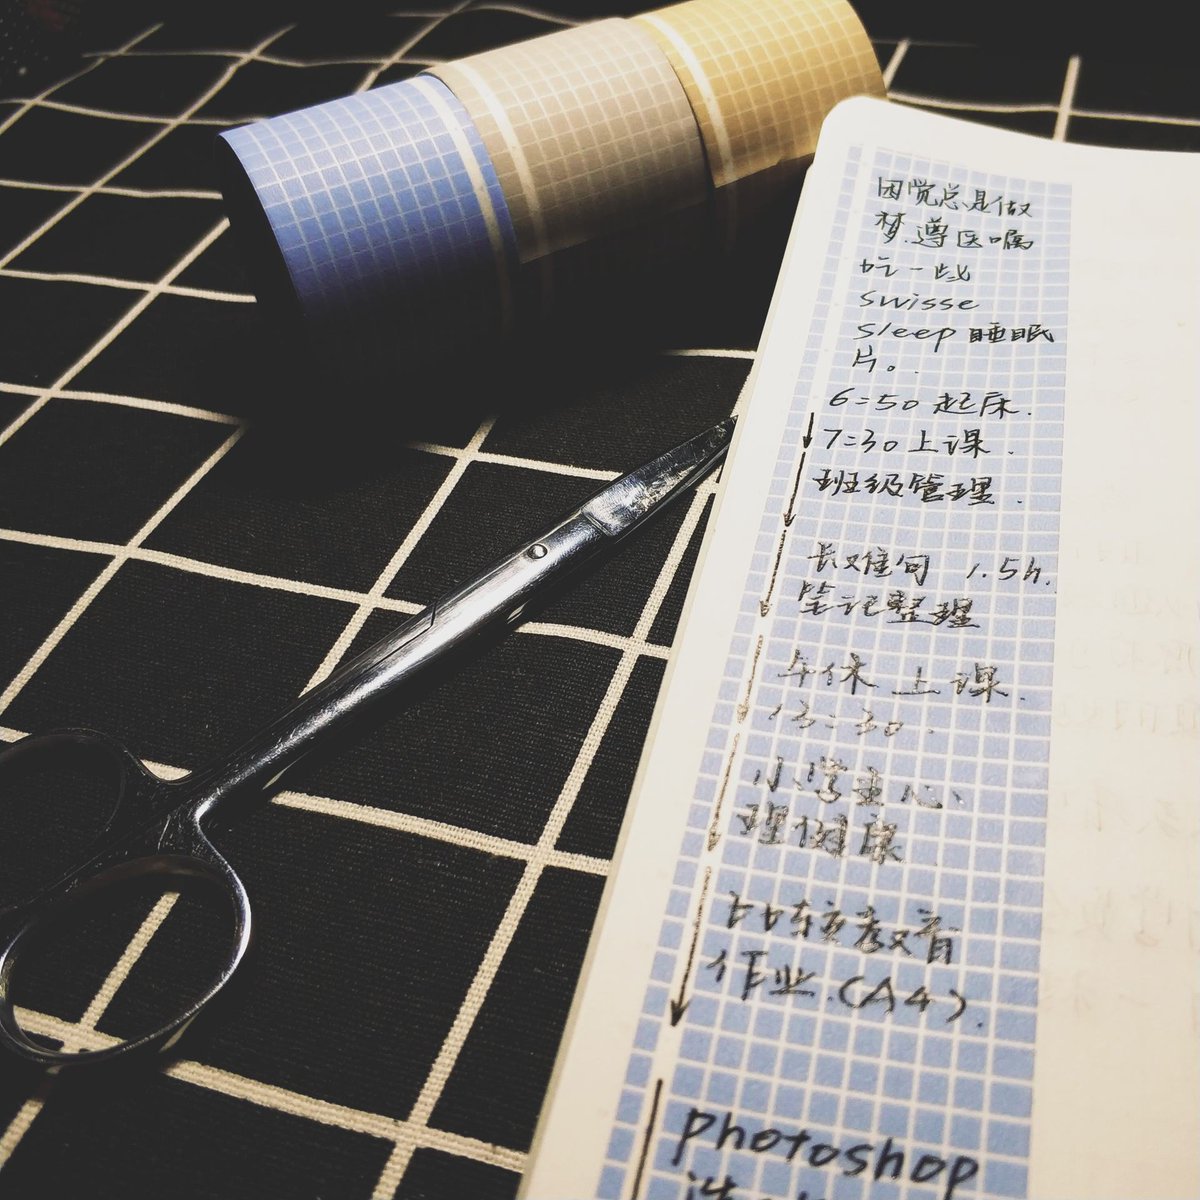 因觉总是做
梦.遵医嘱
吃一些
swisse
sleep睡眠
片。
6:50 起床.
7:30 上课.
班级管理.
长难句 1.5h.
笔记整理
午休 上课.
13:30.
小学生心
理健康
比较教育
作业.(A4).
photoshop